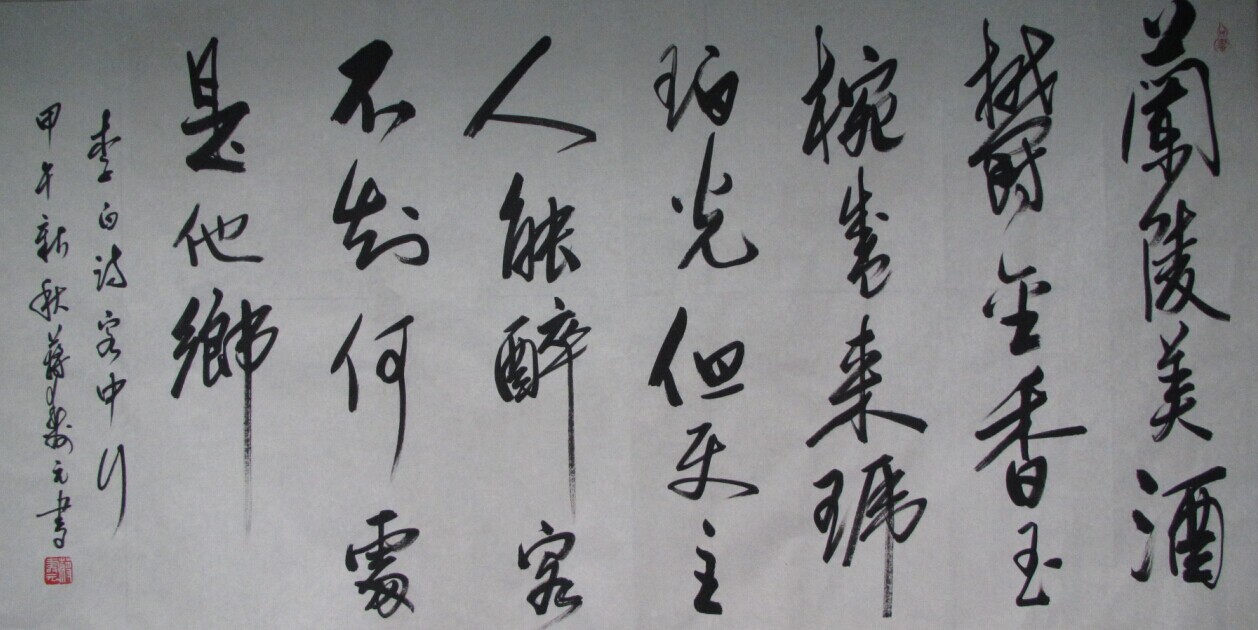 蘭陵美酒
欝金香玉
椀盛来琥
珀光但使主
人能醉客
不知何處
是他鄉
李白诗客中行
甲午新秋蔣元書